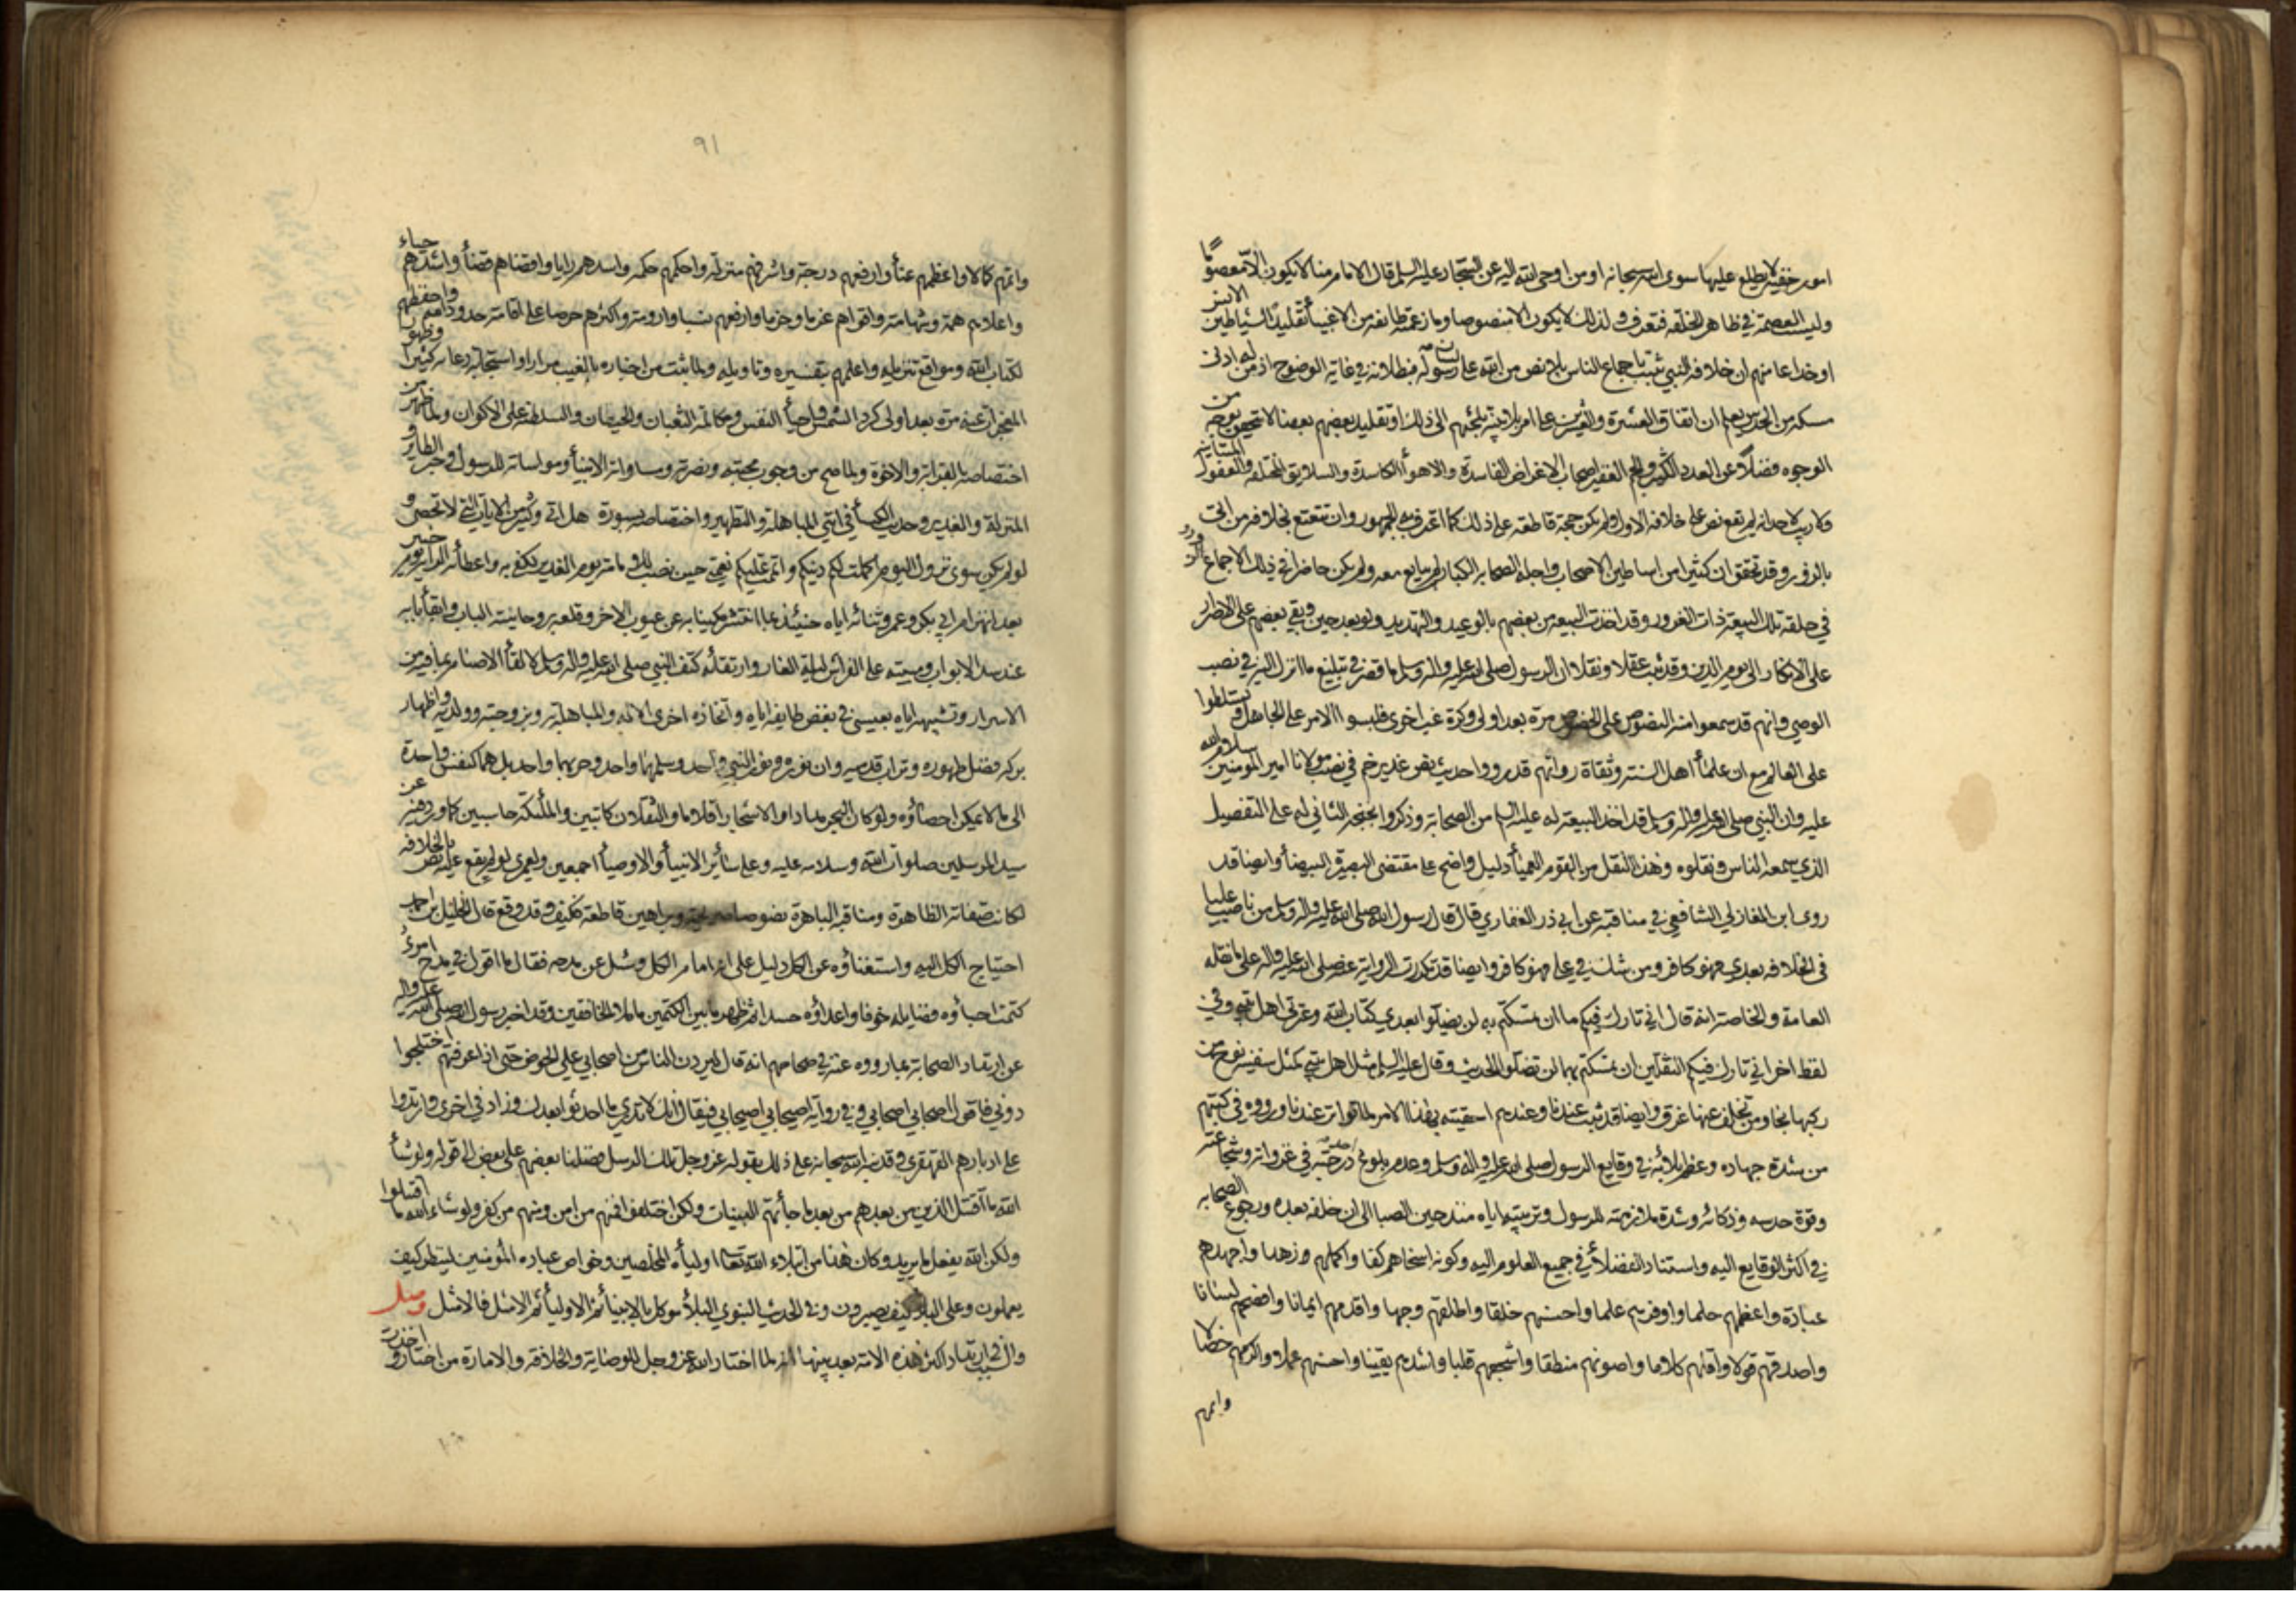 امور خفية لا يطلع عليها سوى الله سبحانه او من اوحى الله اليه عن السجاد عليه السلم قال الامام منا لا يكون الا معصومًا
وليست العصمة في ظاهر الخلقة فتعرف ولذلك لا يكون الا منصوصا وما زعمته طايفة من الاغبيأ تقليدًا لشياطين الانس
او خداعا منهم ان خلافة النبي تثبت باجماع الناس بلا نص من الله على لسان رسوله فبطلانه في غاية الوضوح اذ من له ادنى
مسكة من الحدس يعلم ان اتفاق العشرة والعشرين على امر بلا بينة تلجئهم الى ذلك او تقليد بعضهم بعضا لا يتحقق بوجه من
الوجوه فضلًا عن العدد الكثير والجم الغفير اصحاب الاغراض الفاسدة والاهوأ الكاسدة والسلايق المختلفة والعقول المتباينة
ولا ريب لاحد انه لم يقع نص على خلافة الاول ولم يكن حجة قاطعة على ذلك كما اعترف به الجمهور وان تقتنع بخلافه من اتى
بالزور وقد تحقق ان كثيرًا من اساطين الاصحاب واجلة الصحابة الكبار لم يبايع معه ولم يكن حاضرًا في ذلك الاجماع
في حلقة تلك البيعة ذات الغرور وقد اخذت البيعة من بعضهم بالوعيد والتهديد ولو بعد حين وبقي بعضهم على الاصرار
على الانكار الى يوم الدين وقد ثبت عقلا ونقلا ان الرسول صلى الله عليه واله وسلم ما قصر في تبليغ ما انزل اليه في نصب
الوصي وانهم قد سمعوا منه النصوص على الخصوص مرة بعد اولى وكرة غب اخرى فلبسوا الامر على الجاهل وتسلطوا
على العالم مع ان علمأ اهل السنة وثقاة رواتهم قد رووا حديث نص غدير خم في نصب مولانا امير المؤمنين سلام الله
عليه وان النبي صلى الله عليه واله وسلم قد اخذ البيعة له عليه السلم من الصحابة وذكروا بخبخة الثاني له على التفصيل
الذي سمعه الناس ونقلوه وهذا النقل من القوم العميأ دليل واضح على مقتضى البصيرة البيضأ وايضا قد
روى ابن المغازلي الشافعي في مناقبه عن ابي ذر الغفاري قال قال رسول الله صلى الله عليه واله وسلم من ناصب عليا
في الخلافة بعدي فهو كافر ومن شك في علي فهو كافر وايضا قد تكررت الرواية عنه صلى الله عليه واله على ما نقله
العامة والخاصة انه قال اني تارك فيكم ما ان تمسكتم به لن تضلوا بعدي كتاب الله وعترتي اهل بيتي وفي
لفظ اخر اني تارك فيكم الثقلين ان تمسكتم بهما لن تضلوا الحديث وقال عليه السلم مثل اهل بيتي كمثل سفينة نوح من
ركبها نجا ومن تخلف عنها غرق وايضا قد ثبت عندنا وعندهم احقيته بهذا الامر لما تواتر عندنا ورووه في كتبهم
من شدة جهاده وعظم بلائه في وقايع الرسول صلى الله عليه واله وسلم وعدم بلوغ احد درجته في غزواته وشجاعته
وقوة حدسه وذكائه وشدة ملازمته للرسول وتربيته اياه منذ حين الصبا الى ان خلفه بعده ورجوع الصحابة
في اكثر الوقايع اليه واستناد الفضلأ في جميع العلوم اليه وكونه اسخاهم كفا واكملهم زهدا واجهدهم
عبادة واعظمهم حلما واوفرهم علما واحسنهم خلقا واطلقهم وجها واقدمهم ايمانا وافصحهم لسانا
واصدقهم قولا واقلهم كلاما واصوبهم منطقا واشجعهم قلبا واشدهم يقينا واحسنهم عملا واكرمهم خصالا
واتمهم
٩١
واتمهم كمالا واعظمهم عنأ وارفعهم درجة واشرفهم منزلة واحكمهم حكمة واسدهم رايا واقضاهم قضأ واشدهم حياء
واعلاهم همة وشهامة واقواهم عزما وحزما وارفعهم نسبا وارومة واكثرهم حرصا على اقامة حدود الله واحفظهم
لكتاب الله ومواقع تنزيله واعلمهم بتفسيره وتاويله ولما ثبت من اخباره بالغيب مرارا واستجابة دعائه كثيرا وظهور
المعجزات عنه مرة بعد اولى كرد الشمس واحيأ النفس ومكالمة الثعبان والحيتان والسلطنة على الاكوان ولما ظهر من
اختصاصه بالقرابة والاخوة ولما صح من وجوب محبته ونصرته ومساواته الانبيأ ومواساته للرسول وخبر الطاير و
المنزلة والغدير وحديث الكسأ في ايتي المباهلة والتطهير واختصاصه بسورة هل اتى وكثير من الايات التي لا تحصى و
لو لم يكن سوى نزول اليوم اكملت لكم دينكم واتممت عليكم نعمتي حين نصب للامامة يوم الغدير لكفى به واعطائه الراية يوم خيبر
بعد انهزام ابي بكر وعمر وثنائه اياه حينئذ بما انتشر وكنايته عن عيوب الاخر وقلعه بروحانيته الباب وابقأ بابه
عند سد الابواب ومبيته على الفراش ليلة الغار وارتقائه كتف النبي صلى الله عليه واله وسلم لالقأ الاصنام بما فيه من
الاسرار وتشبيهه اياه بعيسى في بغض طايفة اياه واتخاذه اخرى الاله والمباهلة به وبزوجته وولديه واظهار
بركة فضل طهوره وتراب قدميه وان نوره ونور النبي واحد وسلمهما واحد وحربهما واحد بل هما كنفس واحدة
الى ما لا يمكن احصاؤه ولو كان البحر مدادا والاشجار اقلاما والثقلان كاتبين والملئكة حاسبين كما ورد عن
سيد المرسلين صلوات الله وسلامه عليه وعلى سائر الانبيأ والاوصيأ اجمعين ولعمري لو لم يقع عليه نص بالخلافة
لكانت صفاته الظاهرة ومناقبه الباهرة نصوصا صريحة وبراهين قاطعة فكيف وقد وقع قال الخليل بن احمد
احتياج الكل اليه واستغناؤه عن الكل دليل على انه امام الكل وسئل عن مدحه فقال ما اقول في مدح امرئ
كتمت احباؤه فضايله خوفا واعداؤه حسدا ثم ظهر ما بين الكتمين ما ملأ الخافقين وقد اخبر رسول الله صلى الله عليه واله
عن ارتداد الصحابة بما رووه عنه في صحاحهم انه قال ليردن الناس من اصحابي على الحوض حتى اذا عرفتهم اختلجوا
دوني فاقول اصحابي اصحابي وفي رواية اصيحابي اصيحابي فيقال انك لا تدري ما احدثوا بعدك وزاد في اخرى وارتدوا
على ادبارهم القهقرى وقد نبه الله سبحانه على ذلك بقوله عز وجل تلك الرسل فضلنا بعضهم على بعض الى قوله ولو شأ
الله ما اقتتل الذين من بعدهم من بعد ما جأتهم البينات ولكن اختلفوا فمنهم من امن ومنهم من كفر ولو شاء الله ما اقتتلوا
ولكن الله يفعل ما يريد وكان هذا من ابتلاء الله تعالى اوليأه المخلصين وخواص عباده المؤمنين لينظر كيف
يعملون وعلى البلاء كيف يصبرون وفي الحديث النبوي البلأ موكل بالانبيأ ثم الاوليأ ثم الامثل فالامثل وصل
والسبب في ارتداد اكثر هذه الامة بعد نبيها انه لما اختار الله عز وجل للوصاية والخلافة والامارة من اختاره اخذت